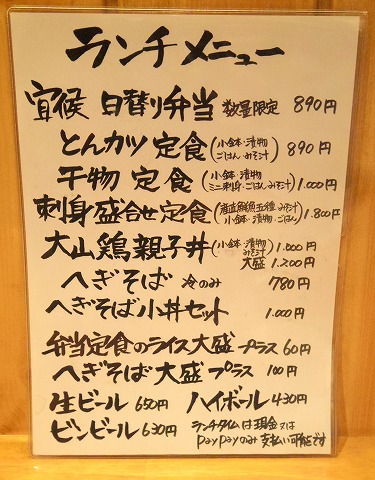 ランチメニュー
宜候 日替り弁当 数量限定 890円
とんカツ定食 (小鉢・漬物 ごはん・みそ汁) 890円
干物定食 (小鉢・漬物 ミニ刺身・ごはん・みそ汁) 1.000円
刺身盛合せ定食 (産直鮮魚五種・みそ汁 小鉢・漬物・ごはん) 1.800円
大山鶏親子丼 (小鉢・漬物 みそ汁) 1.000円
大盛 1.200円
へぎそば 冷のみ 780円
へぎそば小丼セット 1.000円
弁当定食のライス大盛 プラス 60円
へぎそば大盛 プラス 100円
生ビール 650円 ハイボール 430円
ビンビール 630円 ランチタイムは現金又は
PayPayのみ支払い可能です